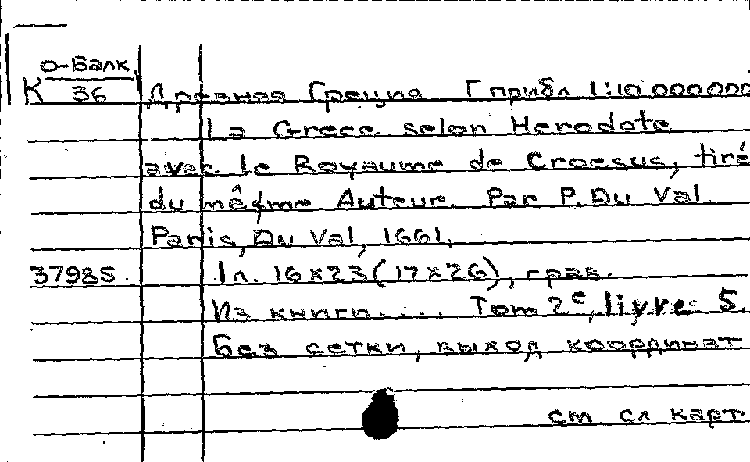 О-Балк.
К 36 Древняя Греция [прибл 1:10.000000
La Grece selon Herodote
avec le Royaume de Croesus, tiré
du mêsme Auteur. Par P. Du Val
Paris, Du Val, 1661.
37985. 1л. 16×23(17×26), грав.
Из книги.... Tom 2e, livre 5.
Без сетки, выход координат
см сл карт